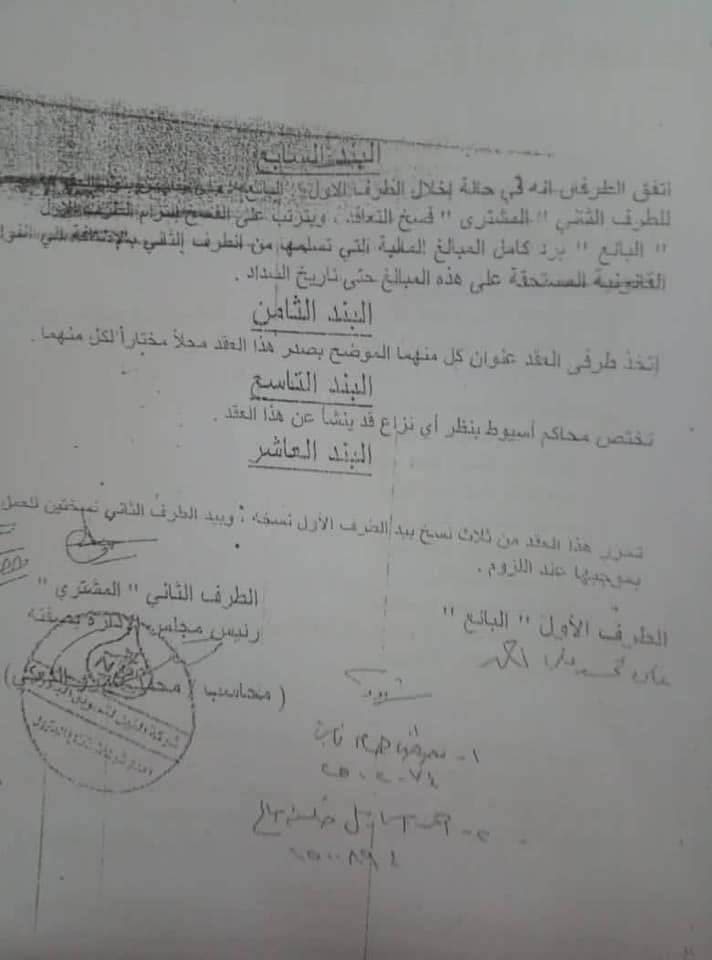 البند السابع
اتفق الطرفان انه في حالة إخلال الطرف الاول البائع
للطرف الثاني " المشترى " فسخ التعاقد . ويترتب على الفسخ التزام الطرف الأول
" البائع " برد كامل المبالغ المالية التي تسلمها من الطرف الثاني بالإضافة إلى
القانونية المستحقة على هذه المبالغ حتى تاريخ السداد .
البند الثامن
إتخذ طرفى العقد عنوان كل منهما الموضح بصدر هذا العقد محلاً مختاراً لكل منهما .
البند التاسع
تختص محاكم أسيوط بنظر أي نزاع قد ينشأ عن هذا العقد .
البند العاشر
تحرر هذا العقد من ثلاث نسخ بيد الطرف الأول نسخة ، وبيد الطرف الثاني نسختين للعمل
بموجبها عند اللزوم .
الطرف الأول " البائع "
الطرف الثاني " المشتري "
رئيس مجلس الإدارة بصفته
( محاسب /
شهود